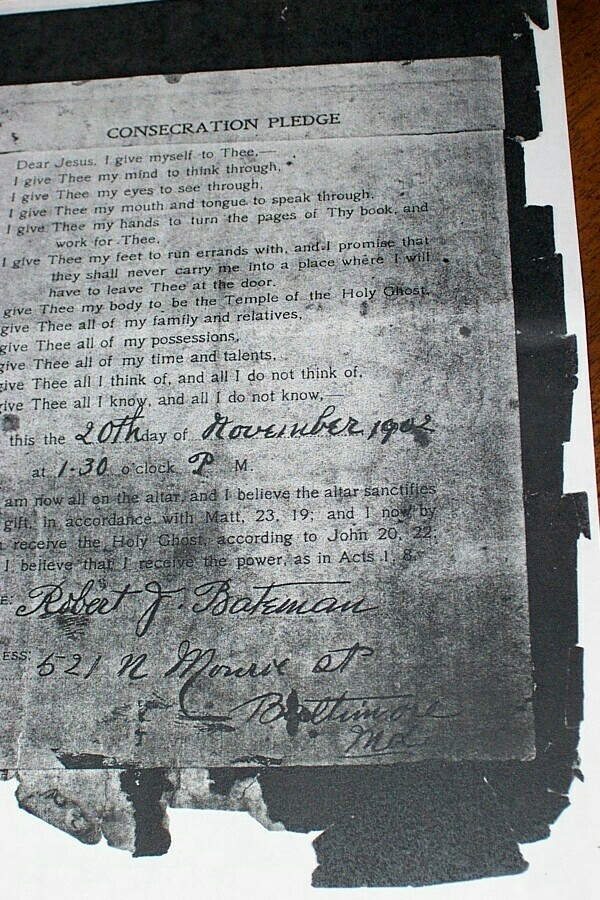 CONSECRATION PLEDGE
Dear Jesus, I give myself to Thee,—
I give Thee my mind to think through,
I give Thee my eyes to see through,
I give Thee my mouth and tongue to speak through,
I give Thee my hands to turn the pages of Thy book, and
work for Thee,
I give Thee my feet to run errands with, and I promise that
they shall never carry me into a place where I will
have to leave Thee at the door.
give Thee my body to be the Temple of the Holy Ghost,
give Thee all of my family and relatives,
give Thee all of my possessions,
give Thee all of my time and talents,
give Thee all I think of, and all I do not think of,
give Thee all I know, and all I do not know,—
this the 20th day of November 1902
at 1·30 o'clock P M.
am now all on the altar, and I believe the altar sanctifies
gift, in accordance with Matt, 23, 19; and I now by
receive the Holy Ghost, according to John 20, 22;
I believe that I receive the power, as in Acts 1, 8.
E: Robert J. Bateman
ESS: 521 N Monroe St
Baltimore
Md